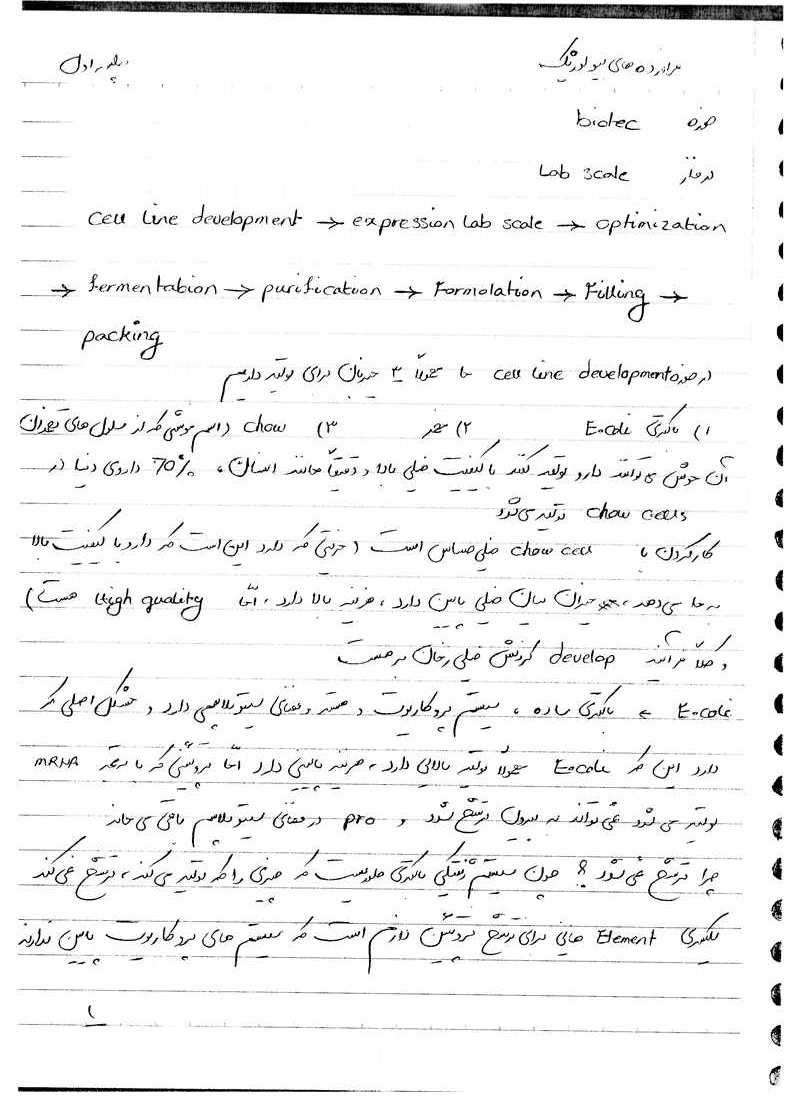 فراورده های بیولوژیک جلسه اول
حوزه biotec
در فاز Lab scale
cell line development → expression Lab scale → optimization
→ fermentabion → purification → Formolation → Filling →
packing
در حوزه cell line development ما معمولاً ۳ میزبان برای تولید داریم
۱) باکتری E.coli ۲) مخمر ۳) chow (اسم موشی که از سلول های تخمدان
آن موش می توانند دارو تولید کنند با کیفیت خیلی بالا و دقیقاً مانند انسان، 70% داروی دنیا در
chow cells تولید می شود
کار کردن با chow cell خیلی حساس است (مزیتی که دارد این است که دارو با کیفیت بالا
به ما می دهد، میزان بیان خیلی پایین دارد، هزینه بالا دارد، امّا high quality هست)
و کلاً فرآیند develop کردنش خیلی زمان بر هست
E.coli ← باکتری ساده، سیستم پروکاریوت و فضای سیتوپلاسمی دارد و مشکل اصلی که
دارد این که E.coli معمولاً تولید بالایی دارد، هزینه پایینی دارد امّا پروتئینی که با ترجمه mRNA
تولید می شود نمی تواند به بیرون ترشح شود و pro در فضای سیتوپلاسم باقی می ماند
چرا ترشح نمی شود؟ چون سیستم ژنتیکی باکتری طوریست که چیزی را که تولید می کند، ترشح نمی کند
یکسری Element هایی برای ترشح پروتئین لازم است که سیستم های پروکاریوت پایین ندارند
۱